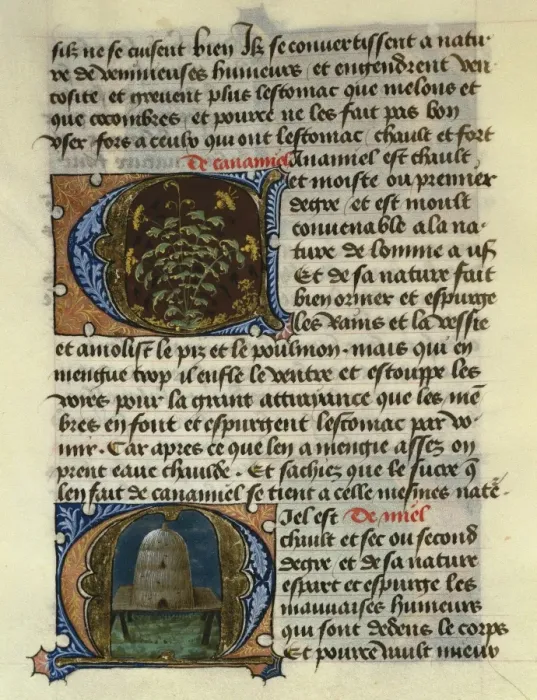 silz ne se cuisent bien Ilz se convertissent a natu-
re de venimieuses humeurs et engendrent ven
tosite et grevent plus lestomac que melons et
que cocombres et pource ne les fait pas bon
user fors a ceulx qui ont lestomac chault et fort
De cananniel Ananniel est chault
et moiste ou premier
degre et est moult
convenable a la na-
ture de lomme a us
Et de sa nature fait
bien oriner et espurge
les rains et la vessie
et amolist le piz et le poulmon. mais qui en
mengue trop il enfle le ventre et estouppe les
voyes pour la grant attrayance que les mē
bres en font et espurgent lestomac par vo-
mir. Car apres ce que len a mengie assez on
prent eaue chaulde. Et sachiez que le sucre q̄
len fait de cananniel se tient a celle mesmes natē.
Iel est De miel
chault et sec ou second
degre et de sa nature
espart et espurge les
mauvaises humeurs
qui sont dedens le corps
Et pource vault mieux